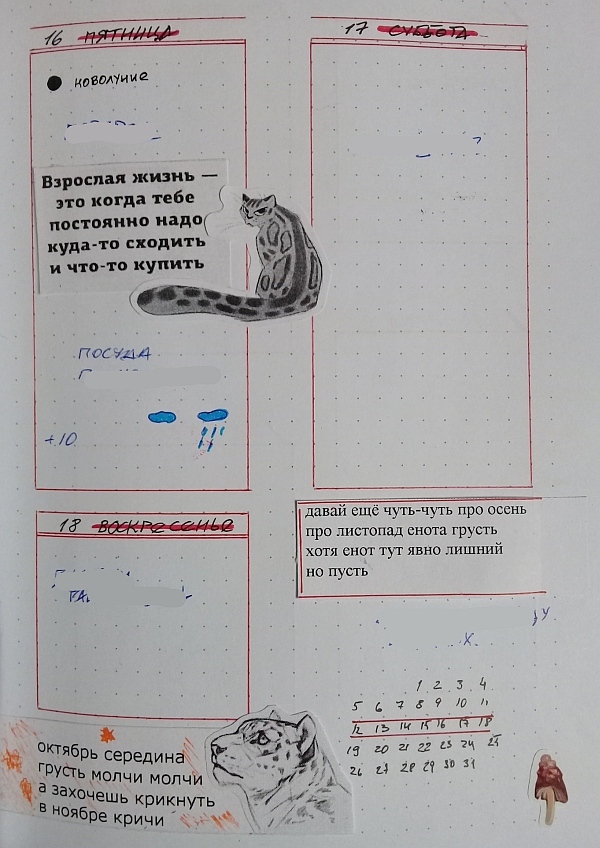 16 ПЯТНИЦА
новолуние
Взрослая жизнь —
это когда тебе
постоянно надо
куда-то сходить
и что-то купить
ПОСУДА
+10
17 СУББОТА
18 ВОСКРЕСЕНЬЕ
давай ещё чуть-чуть про осень
про листопад енота грусть
хотя енот тут явно лишний
но пусть
1 2 3 4
5 6 7 8 9 10 11
12 13 14 15 16 17 18
19 20 21 22 23 24 25
26 27 28 29 30 31
октябрь середина
грусть молчи молчи
а захочешь крикнуть
в ноябре кричи